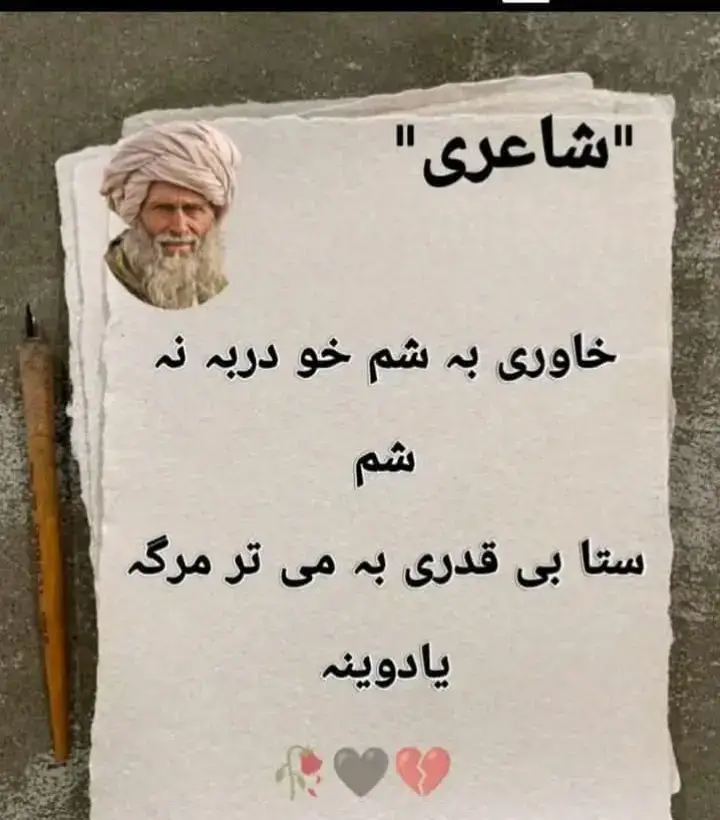 "شاعری"
خاوری به شم خو دربه نه
شم
ستا بی قدری به می تر مرگه
یادوینه